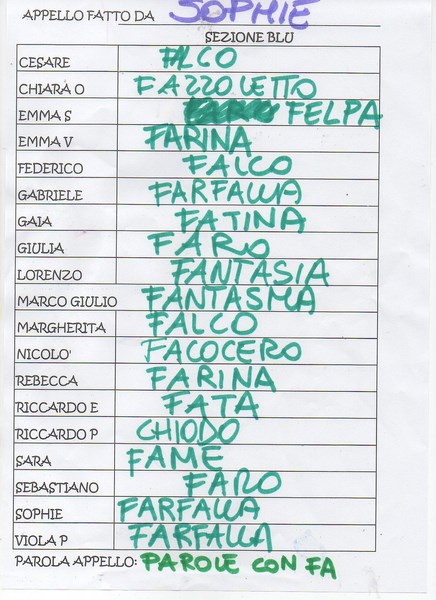 APPELLO FATTO DA SOPHIE
SEZIONE BLU
CESARE FALCO
CHIARA O FAZZOLETTO
EMMA S FELPA
EMMA V FARINA
FEDERICO FALCO
GABRIELE FARFALLA
GAIA FATINA
GIULIA FARO
LORENZO FANTASIA
MARCO GIULIO FANTASMA
MARGHERITA FALCO
NICOLO' FACOCERO
REBECCA FARINA
RICCARDO E FATA
RICCARDO P CHIODO
SARA FAME
SEBASTIANO FARO
SOPHIE FARFALLA
VIOLA P FARFALLA
PAROLA APPELLO: PAROLE CON FA